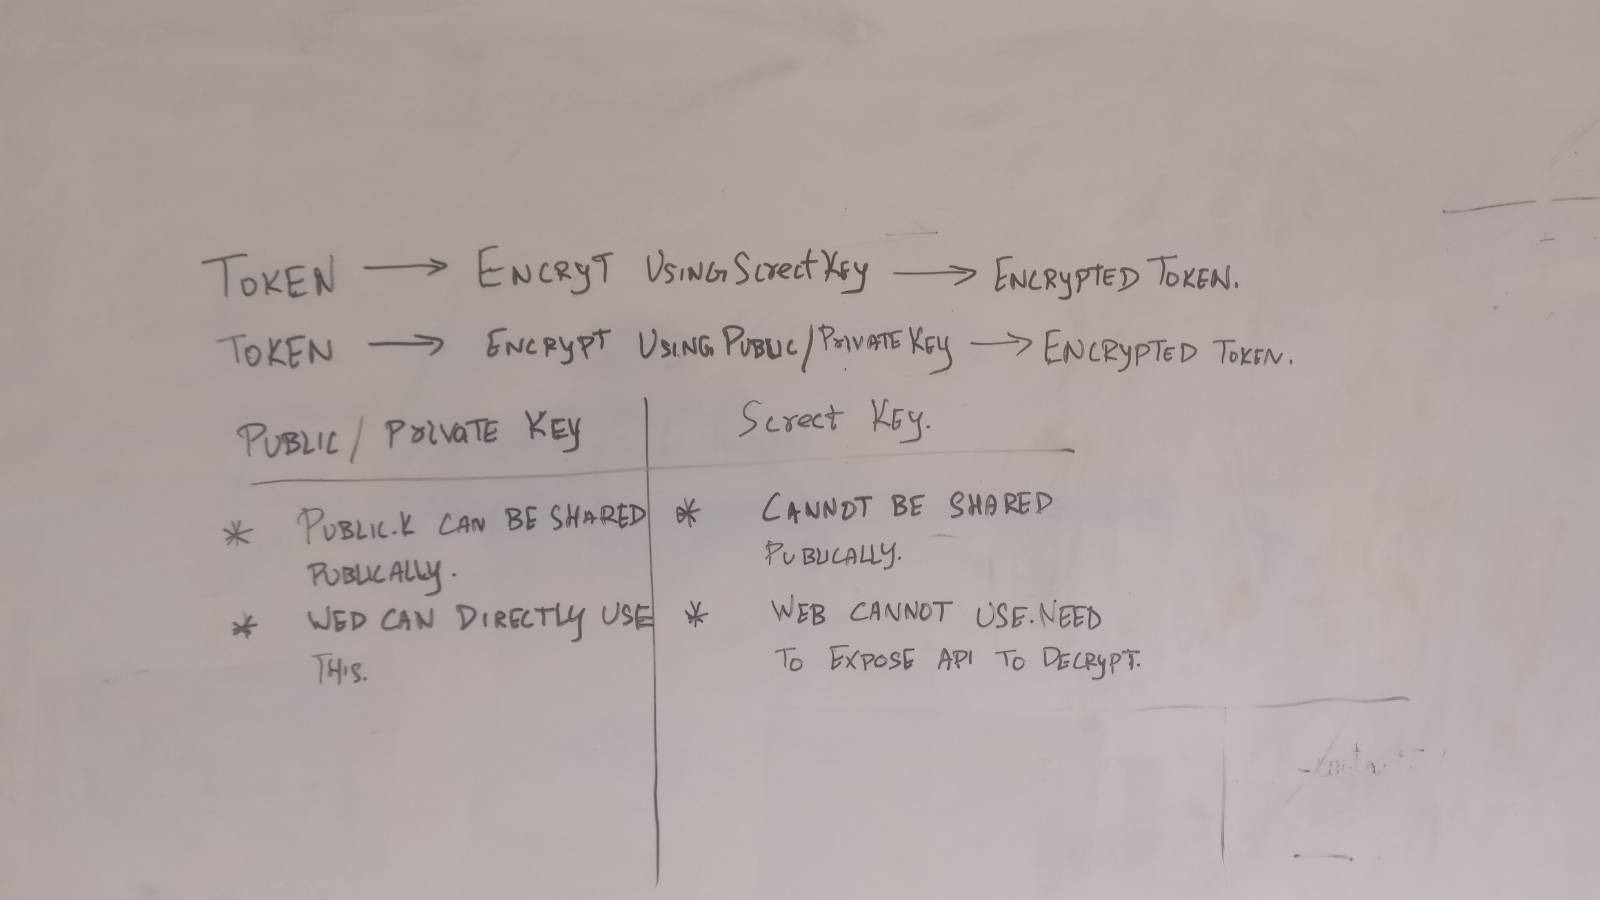 TOKEN → ENCRYT USING SCRECT KEY → ENCRYPTED TOKEN.
TOKEN → ENCRYPT USING PUBLIC/PRIVATE KEY → ENCRYPTED TOKEN.
PUBLIC / PRIVATE KEY
SCRECT KEY.
* PUBLIC.K CAN BE SHARED
PUBLICALLY.
* WED CAN DIRECTLY USE
THIS.
* CANNOT BE SHARED
PUBLICALLY.
* WEB CANNOT USE. NEED
TO EXPOSE API TO DECRYPT.